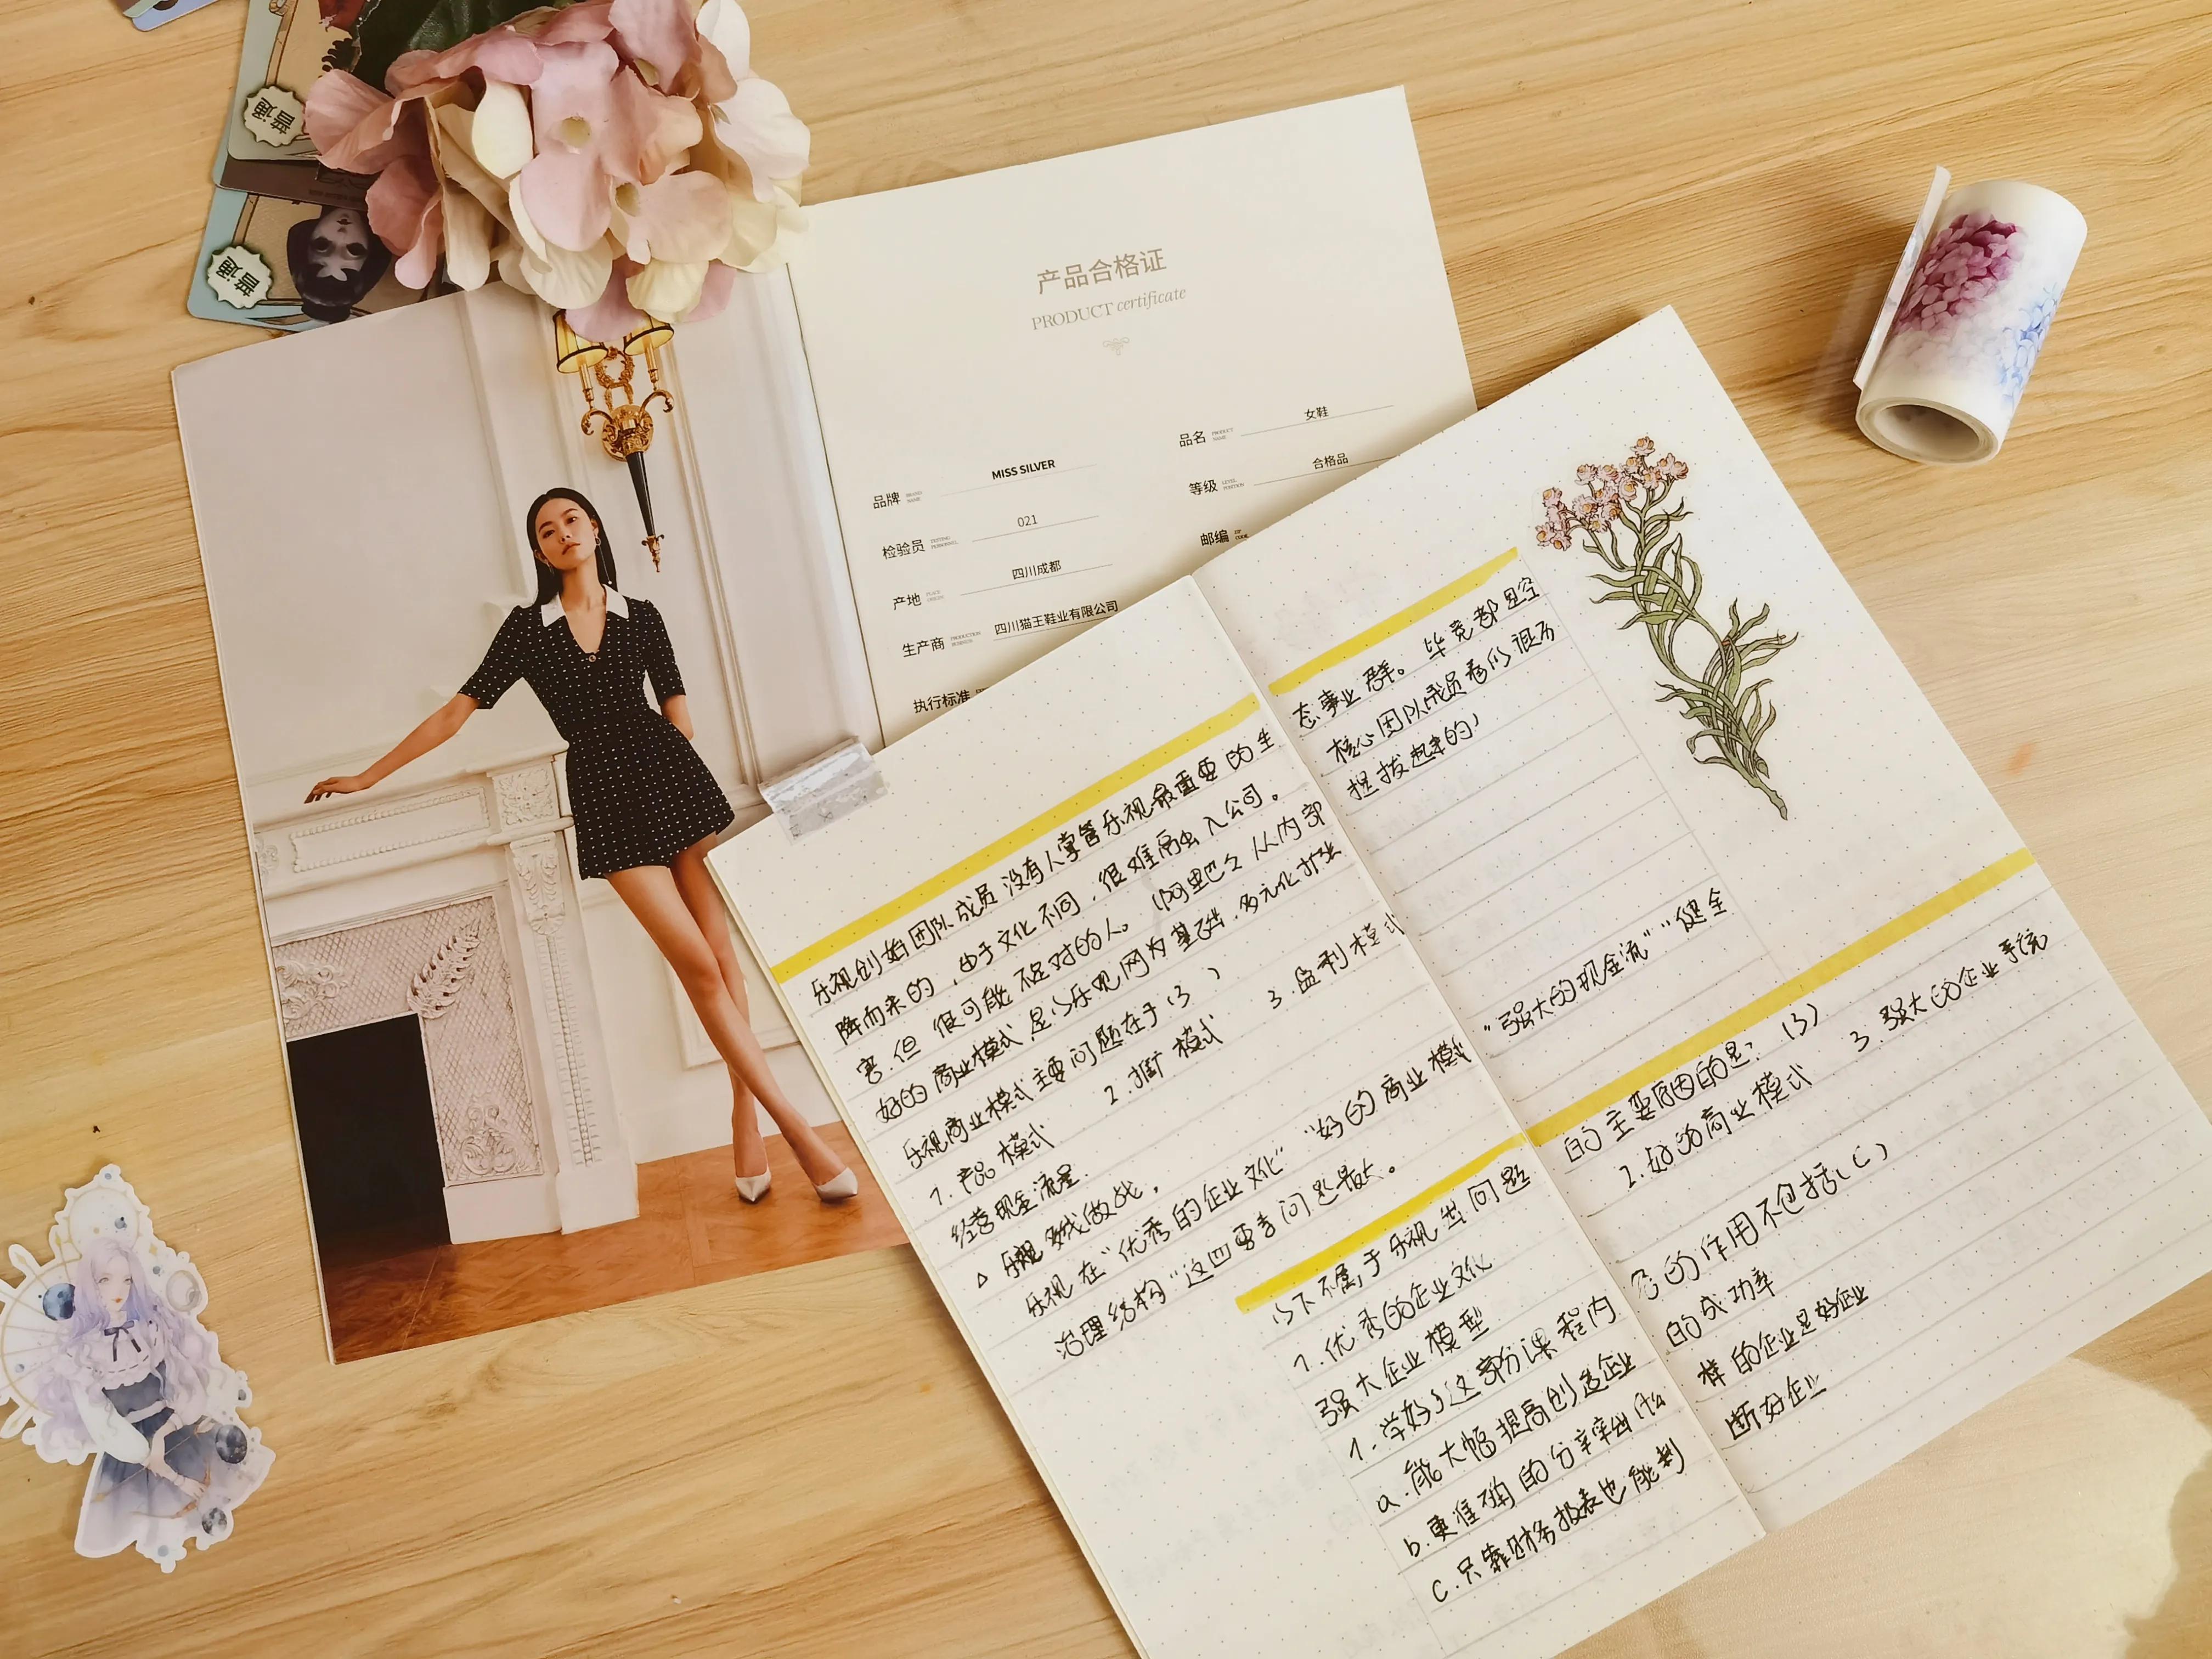 普通
普通
产品合格证
PRODUCT certificate
品牌 BRAND NAME MISS SILVER
品名 PRODUCT NAME 女鞋
检验员 TESTING PERSONNEL 021
等级 LEVEL POSITION 合格品
产地 PLACE ORIGIN 四川成都
邮编 ZIP CODE
生产商 PRODUCTION BUSINESS 四川猫王鞋业有限公司
执行标准
乐视创始团队成员没有人掌管乐视最重要的生
降而来的,由于文化不同,很难融入公司。
害.但 很可能不是对的人。(阿里巴巴从内部
好的商业模式,是以乐视网为基础,多元化扩张
乐视商业模式主要问题在于(3)
1.产品模式 2.推广模式 3.盈利模式
经营现金流量.
△乐视 做战.
乐视在"优秀的企业文化""好的商业模式
治理结构"这四要素问题最大.
以下不属于乐视 问题
1.优秀的企业文化
强大企业模型
1.学好了这部分课程内
a.能大幅提高创造企业
b.更准确的分辨出什么
C.只靠财务报表也能判
态事业群。毕竟都是空
核心团队成员看似很历
提拔起来的,
"强大的现金流""健全
的主要原因的是:(3)
2.好的商业模式 3.强大的企业系统
容的作用不包括(C)
的成功率
样的企业是好企业
断好企业